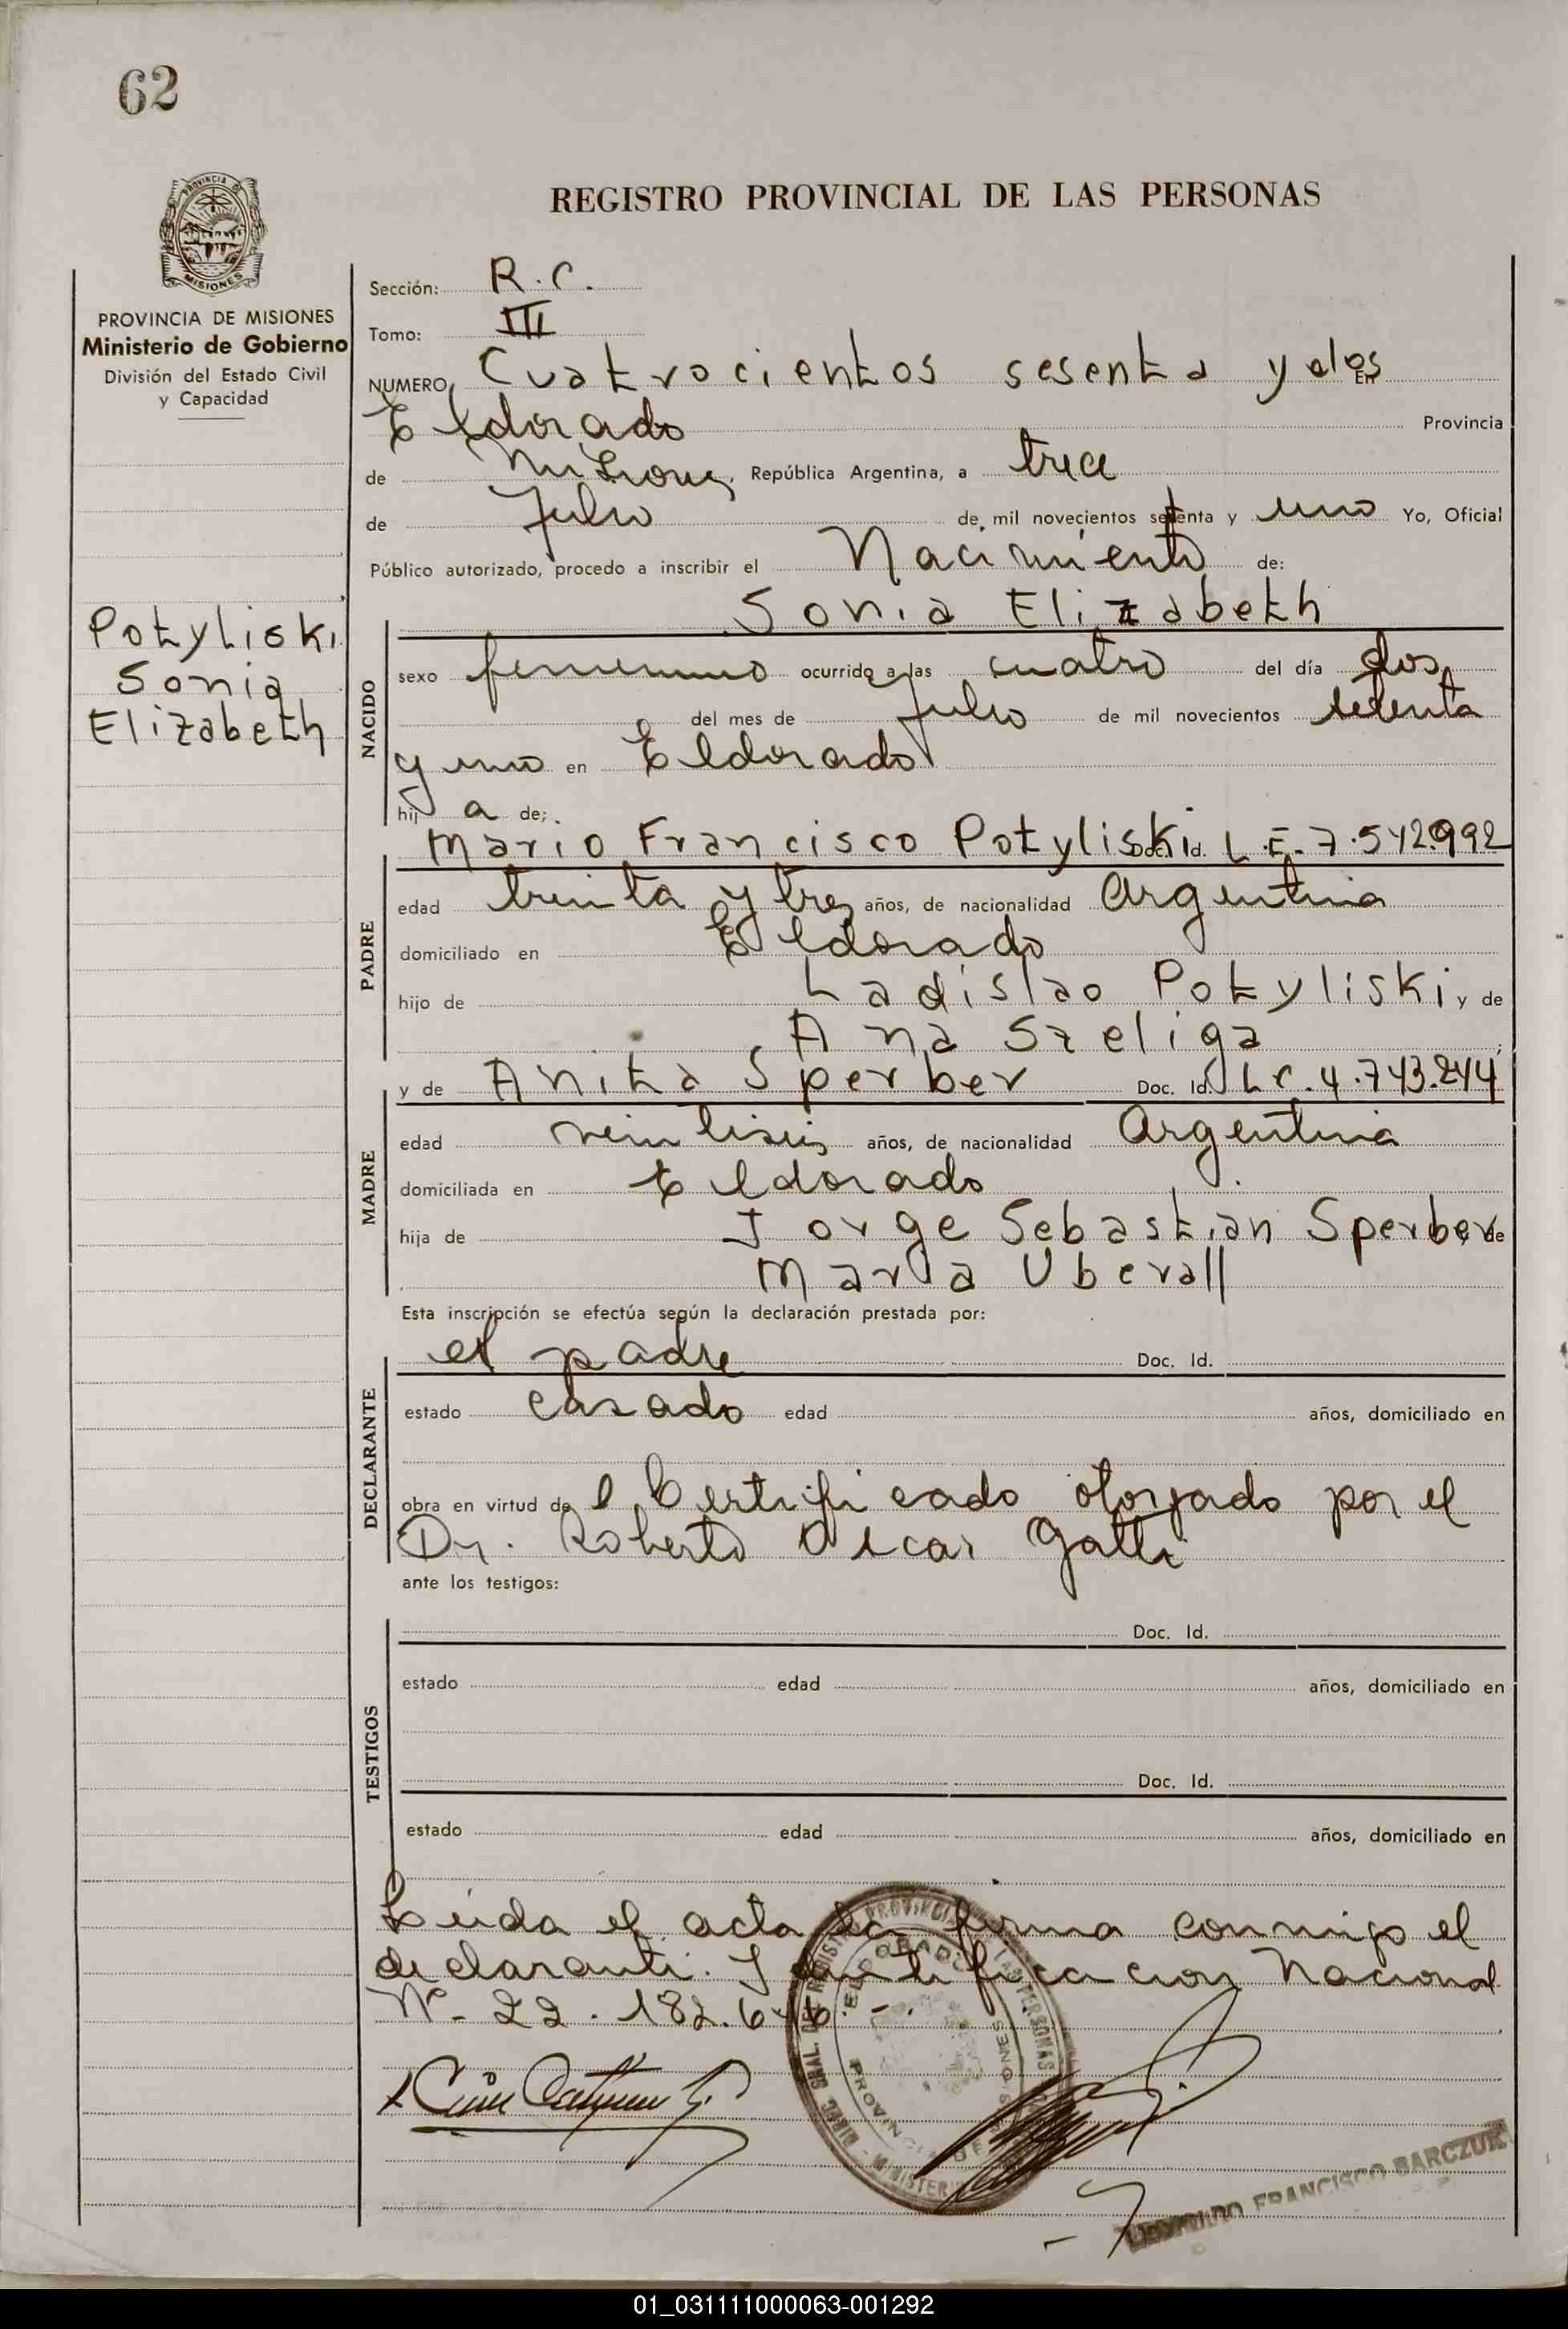 62
PROVINCIA DE
MISIONES
REGISTRO PROVINCIAL DE LAS PERSONAS
PROVINCIA DE MISIONES
Ministerio de Gobierno
División del Estado Civil
y Capacidad
Potyliski
Sonia
Elizabeth
Sección: R.C.
Tomo: III
NUMERO Cuatrocientos sesenta y dos En
Eldorado Provincia
de Misiones, República Argentina, a trece
de Julio de mil novecientos setenta y uno Yo, Oficial
Público autorizado, procedo a inscribir el Nacimiento de:
Sonia Elizabeth
NACIDO
sexo femenino ocurrido a las cuatro del día dos
del mes de Julio de mil novecientos setenta
y uno en Eldorado
hij a de;
Mario Francisco Potyliski Doc. Id. L.E. 7.542.992
PADRE
edad treinta y tres años, de nacionalidad Argentina
domiciliado en Eldorado
hijo de Ladislao Potyliski y de
Ana Szeliga
y de Anita Sperber Doc. Id. L.C. 4.743.244
MADRE
edad veintiseis años, de nacionalidad Argentina
domiciliada en Eldorado
hija de Jorge Sebastian Sperber y de
Maria Uberall
Esta inscripción se efectúa según la declaración prestada por:
el padre Doc. Id.
DECLARANTE
estado casado edad años, domiciliado en
obra en virtud de l Certificado otorgado por el
Dr. Roberto Oscar Gatti
ante los testigos:
TESTIGOS
Doc. Id.
estado edad años, domiciliado en
Doc. Id.
estado edad años, domiciliado en
Leida el acta la firma conmigo el
declarante. Identificacion Nacional
Nº- 22.182.646.-
ELDORADO
PROVINCIA DE MISIONES
FRANCISCO BARCZUK
01_031111000063-001292